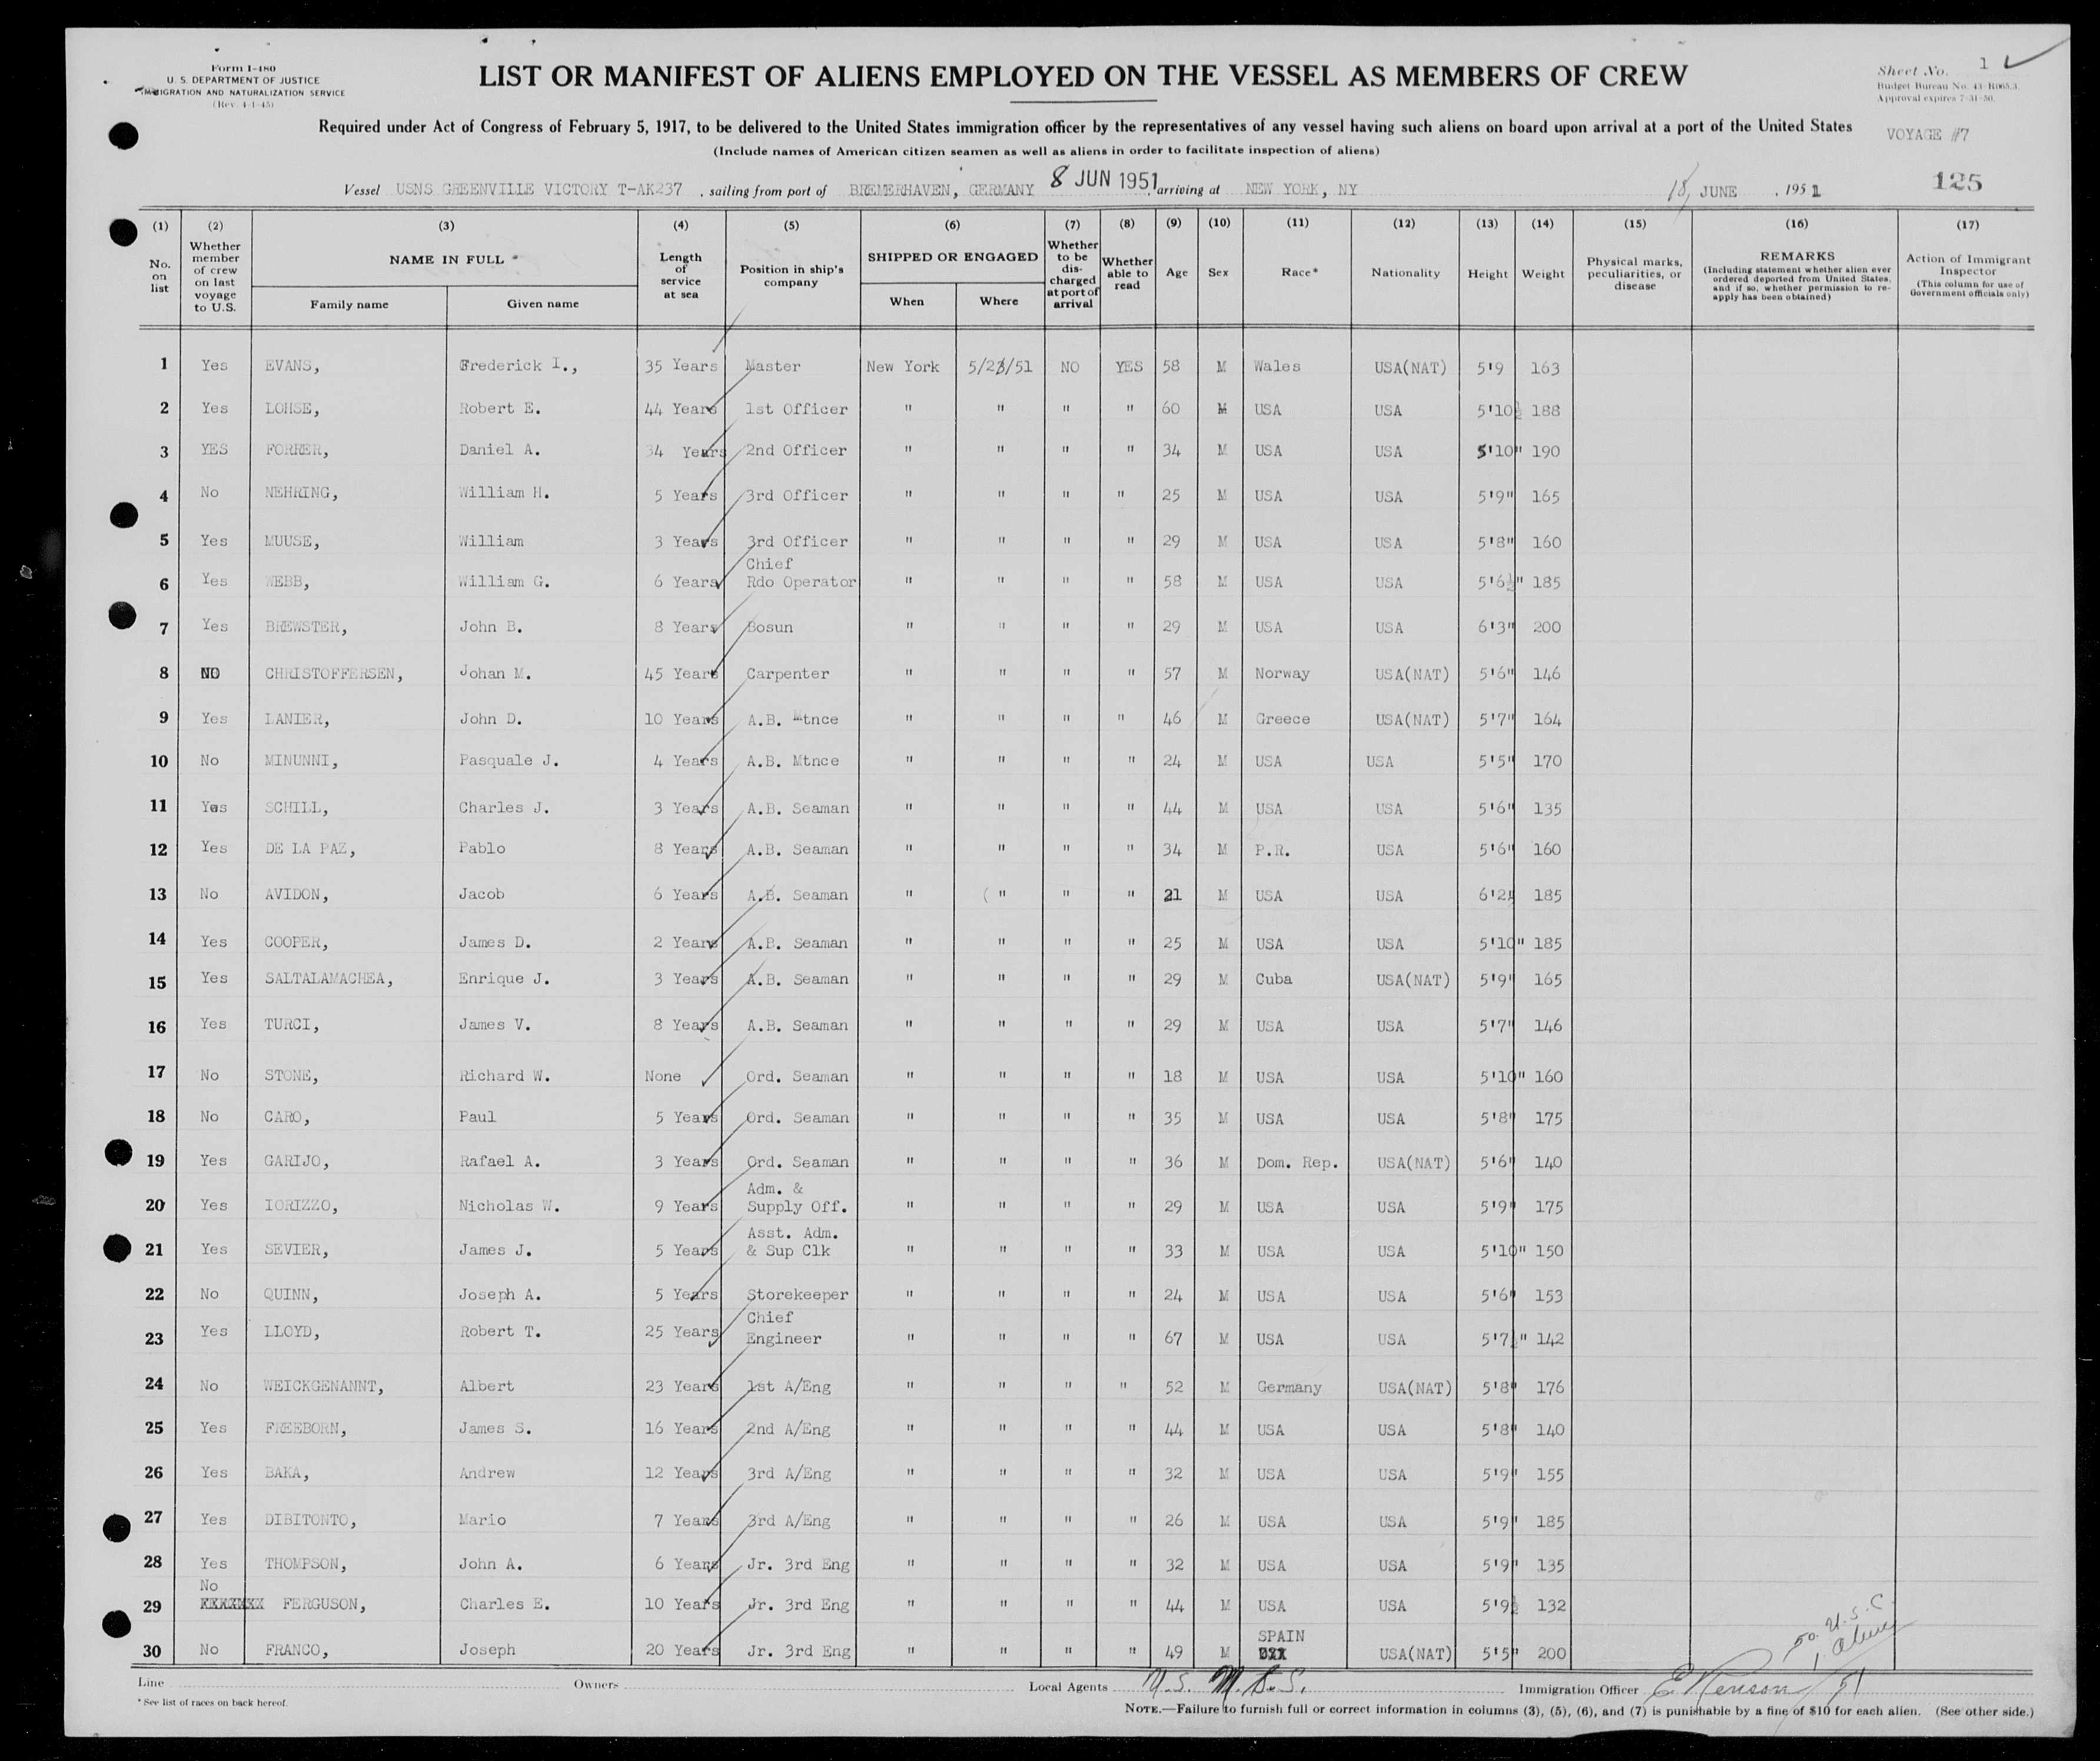 Form I-480
U. S. DEPARTMENT OF JUSTICE
IMMIGRATION AND NATURALIZATION SERVICE
(Rev. 4-1-45)
LIST OR MANIFEST OF ALIENS EMPLOYED ON THE VESSEL AS MEMBERS OF CREW
Sheet No. 1
Budget Bureau No. 43-R065.3.
Approval expires 7-31-50.
Required under Act of Congress of February 5, 1917, to be delivered to the United States immigration officer by the representatives of any vessel having such aliens on board upon arrival at a port of the United States
VOYAGE #7
(Include names of American citizen seamen as well as aliens in order to facilitate inspection of aliens)
Vessel USNS GREENVILLE VICTORY T-AK237 , sailing from port of BREMERHAVEN, GERMANY 8 JUN 1951, arriving at NEW YORK, NY 18, JUNE , 1951
125
(1) (2) (3) (4) (5) (6) (7) (8) (9) (10) (11) (12) (13) (14) (15) (16) (17)
No. on list
Whether member of crew on last voyage to U.S.
NAME IN FULL
Family name Given name
Length of service at sea
Position in ship's company
SHIPPED OR ENGAGED
When Where
Whether to be discharged at port of arrival
Whether able to read
Age Sex Race* Nationality Height Weight
Physical marks, peculiarities, or disease
REMARKS
(Including statement whether alien ever ordered deported from United States, and if so, whether permission to re-apply has been obtained)
Action of Immigrant Inspector
(This column for use of Government officials only)
1 Yes EVANS, Frederick I., 35 Years Master New York 5/23/51 NO YES 58 M Wales USA(NAT) 5'9 163
2 Yes LOHSE, Robert E. 44 Years 1st Officer " " " " 60 M USA USA 5'10½ 188
3 YES FORRER, Daniel A. 34 Years 2nd Officer " " " " 34 M USA USA 5'10" 190
4 No NEHRING, William H. 5 Years 3rd Officer " " " " 25 M USA USA 5'9" 165
5 Yes MUUSE, William 3 Years 3rd Officer " " " " 29 M USA USA 5'8" 160
6 Yes WEBB, William G. 6 Years Chief Rdo Operator " " " " 58 M USA USA 5'6½" 185
7 Yes BREWSTER, John B. 8 Years Bosun " " " " 29 M USA USA 6'3" 200
8 NO CHRISTOFFERSEN, Johan M. 45 Years Carpenter " " " " 57 M Norway USA(NAT) 5'6" 146
9 Yes LANIER, John D. 10 Years A.B. Mtnce " " " " 46 M Greece USA(NAT) 5'7" 164
10 No MINUNNI, Pasquale J. 4 Years A.B. Mtnce " " " " 24 M USA USA 5'5" 170
11 Yes SCHILL, Charles J. 3 Years A.B. Seaman " " " " 44 M USA USA 5'6" 135
12 Yes DE LA PAZ, Pablo 8 Years A.B. Seaman " " " " 34 M P.R. USA 5'6" 160
13 No AVIDON, Jacob 6 Years A.B. Seaman " " " " 21 M USA USA 6'2" 185
14 Yes COOPER, James D. 2 Years A.B. Seaman " " " " 25 M USA USA 5'10" 185
15 Yes SALTALAMACHEA, Enrique J. 3 Years A.B. Seaman " " " " 29 M Cuba USA(NAT) 5'9" 165
16 Yes TURCI, James V. 8 Years A.B. Seaman " " " " 29 M USA USA 5'7" 146
17 No STONE, Richard W. None Ord. Seaman " " " " 18 M USA USA 5'10" 160
18 No CARO, Paul 5 Years Ord. Seaman " " " " 35 M USA USA 5'8" 175
19 Yes GARIJO, Rafael A. 3 Years Ord. Seaman " " " " 36 M Dom. Rep. USA(NAT) 5'6" 140
20 Yes IORIZZO, Nicholas W. 9 Years Adm. & Supply Off. " " " " 29 M USA USA 5'9" 175
21 Yes SEVIER, James J. 5 Years Asst. Adm. & Sup Clk " " " " 33 M USA USA 5'10" 150
22 No QUINN, Joseph A. 5 Years Storekeeper " " " " 24 M USA USA 5'6" 153
23 Yes LLOYD, Robert T. 25 Years Chief Engineer " " " " 67 M USA USA 5'7½" 142
24 No WEICKGENANNT, Albert 23 Years 1st A/Eng " " " " 52 M Germany USA(NAT) 5'8" 176
25 Yes FREEBORN, James S. 16 Years 2nd A/Eng " " " " 44 M USA USA 5'8" 140
26 Yes BAKA, Andrew 12 Years 3rd A/Eng " " " " 32 M USA USA 5'9" 155
27 Yes DIBITONTO, Mario 7 Years 3rd A/Eng " " " " 26 M USA USA 5'9" 185
28 Yes THOMPSON, John A. 6 Years Jr. 3rd Eng " " " " 32 M USA USA 5'9" 135
29 No FERGUSON, Charles E. 10 Years Jr. 3rd Eng " " " " 44 M USA USA 5'9½ 132
30 No FRANCO, Joseph 20 Years Jr. 3rd Eng " " " " 49 M SPAIN USA(NAT) 5'5" 200
50 U.S.C.
1 alien
Line Owners Local Agents U.S. M.S.S. Immigration Officer
* See list of races on back hereof.
NOTE.—Failure to furnish full or correct information in columns (3), (5), (6), and (7) is punishable by a fine of $10 for each alien. (See other side.)